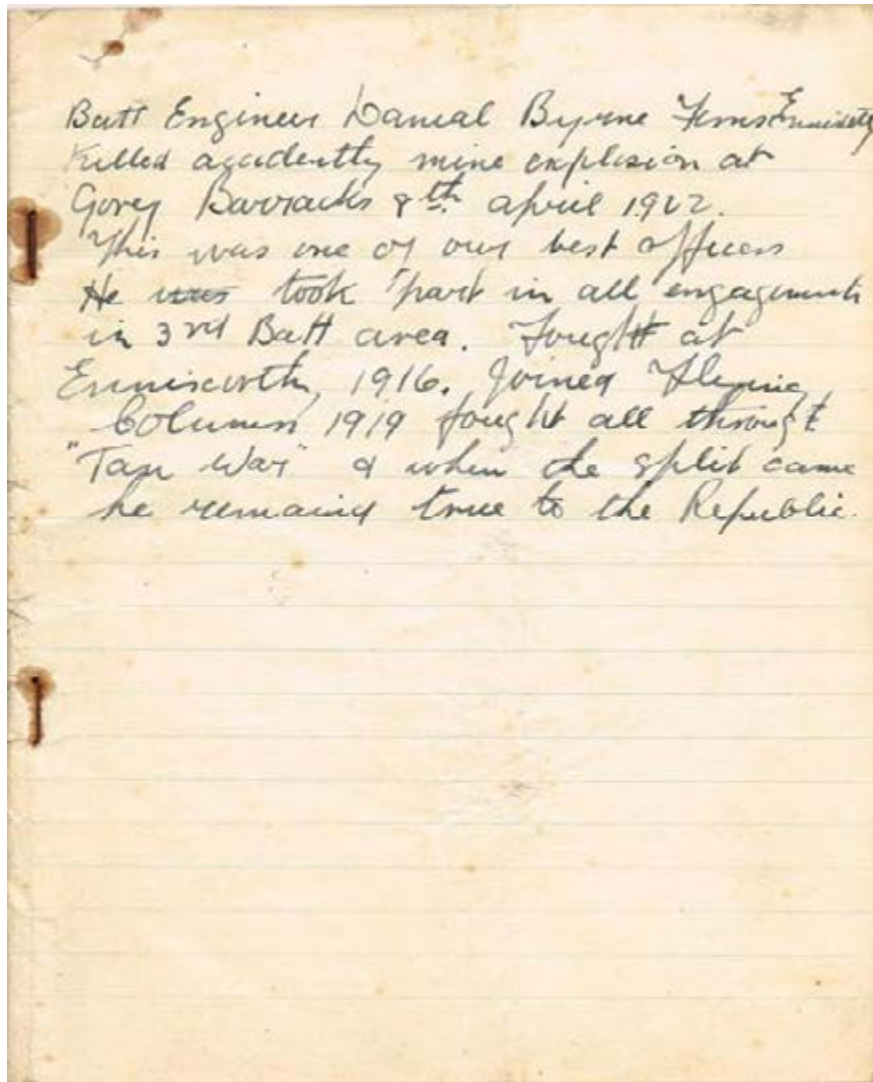 Batt Engineer Danial Byrne Ferns
Killed acadently mine explosion at
Gorey Barracks 8th april 1922.
This was one of our best officers
He was took part in all engagements
in 3rd Batt area. Fought at
Enniscorth, 1916. Joined Flying
Column 1919 fought all through
"Tan War" & when the split came
he remained true to the Republic.